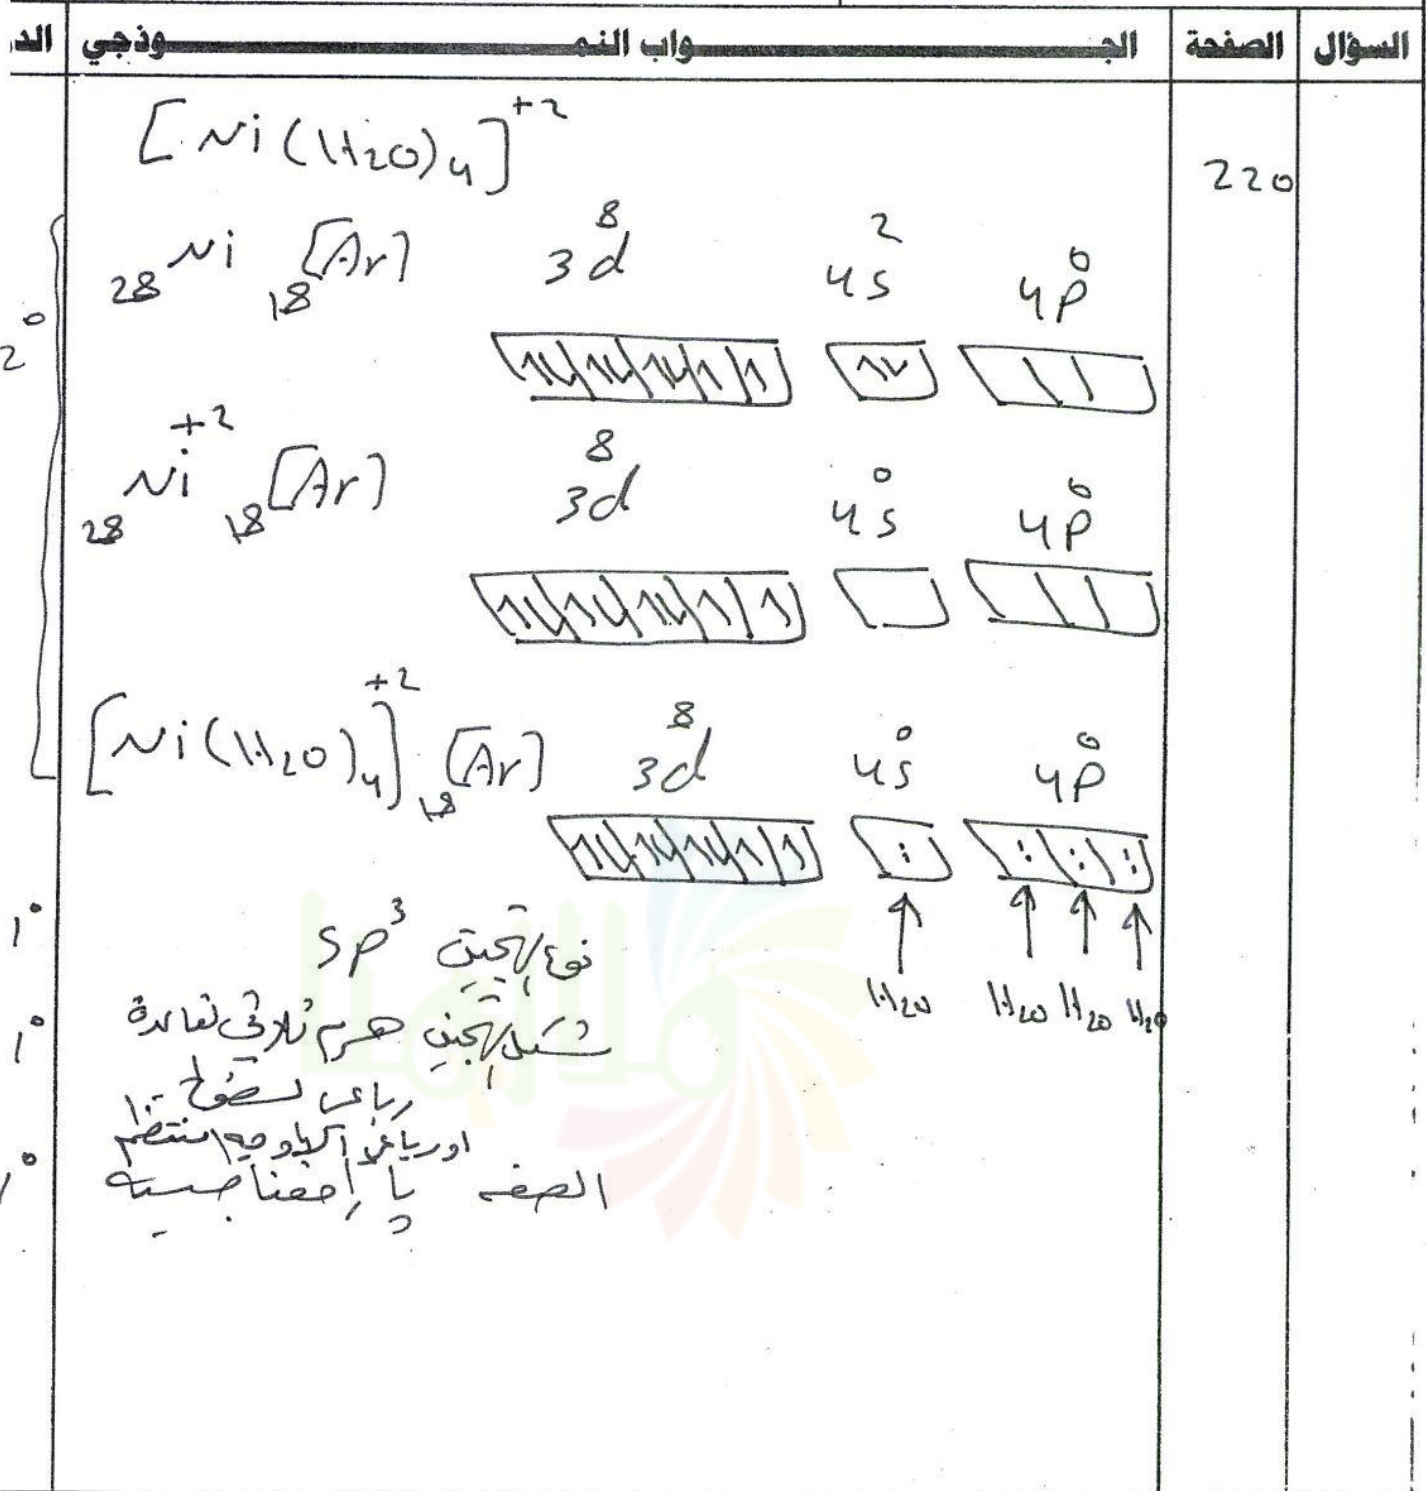 السؤال الصفحة الجـــواب النمـــوذجي الد
220
[Ni(H2O)4]+2
28Ni 18[Ar] 3d8 4s2 4p0
2°
28Ni+2 18[Ar] 3d8 4s0 4p0
[Ni(H2O)4]+2 18[Ar] 3d8 4s0 4p0
H2O H2O H2O H2O
نوع التهجين sp3 1°
شكل التهجين هرم ثلاثي القاعدة 1°
رباعي السطوح
او رباعي الاوجه المنتظم
الصفه بارامغناطيسيه 1°